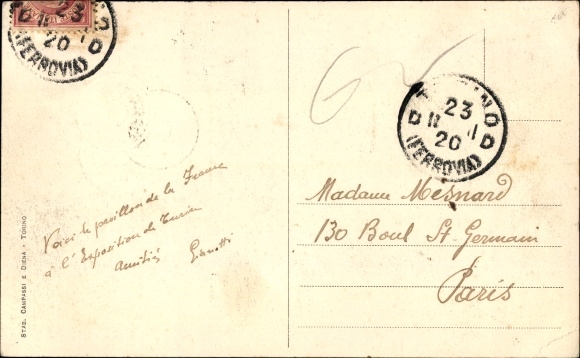 23
D II D
20
(FERROVIA)
23
D II D
20
(FERROVIA)
Voici le pavillon de la France
à l'Exposition de Turin
Amitiés
Madame Mesnard
130 Boul St-Germain
Paris
STAB. CAMPASSI E DIENA - TORINO